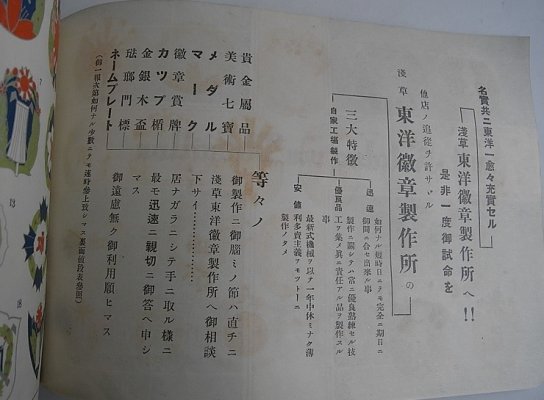 名實共ニ東洋一愈々充實セル
淺草東洋徽章製作所へ!!
是非一度御試命を
他店ノ追從ヲ許サヾル
淺草東洋徽章製作所の
三大特徴
自家工場製作
迅速
如何ナル短時日ニテモ完全ニ期日ニ
御間ニ合セ出來ル事
優良品
製作ニ關シテハ常ニ優良熟練セル技
工ヲ集メ眞ニ責任アル品ヲ製作スル事
安價
最新式機械ヲ以テ一年中休ミナク薄
利多賣主義ヲモツトーニ
製作ノタメ
貴金屬品
美術七寶
メダル
マーク
徽章賞牌
カツプ楯
金銀木盃
琺瑯門標
ネームプレート
等々ノ
御製作ニ御腦ミノ節ハ直チニ
淺草東洋徽章製作所へ御相談
下サイ
居ナガラニシテ手ニ取ル様ニ
最モ迅速ニ親切ニ御答へ申シ
マス
御遠慮無ク御利用願ヒマス
(御一報次第如何ナル少數ニテモ速時參上致シマス裏面値段表參照)
13